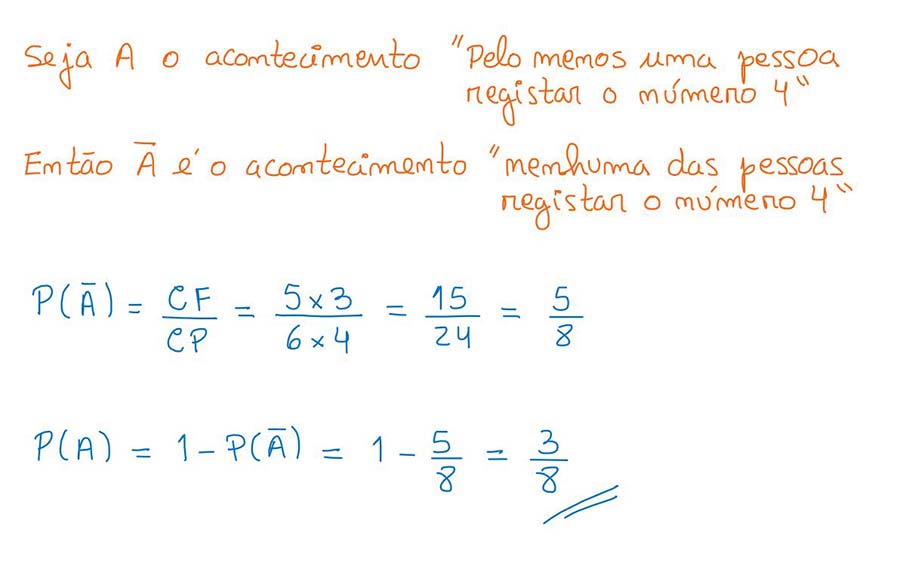 Seja A o acontecimento "Pelo menos uma pessoa
registar o número 4"
Então A̅ é o acontecimento "nenhuma das pessoas
registar o número 4"
P(A̅) = CF/CP = 5×3/6×4 = 15/24 = 5/8
P(A) = 1 - P(A̅) = 1 - 5/8 = 3/8